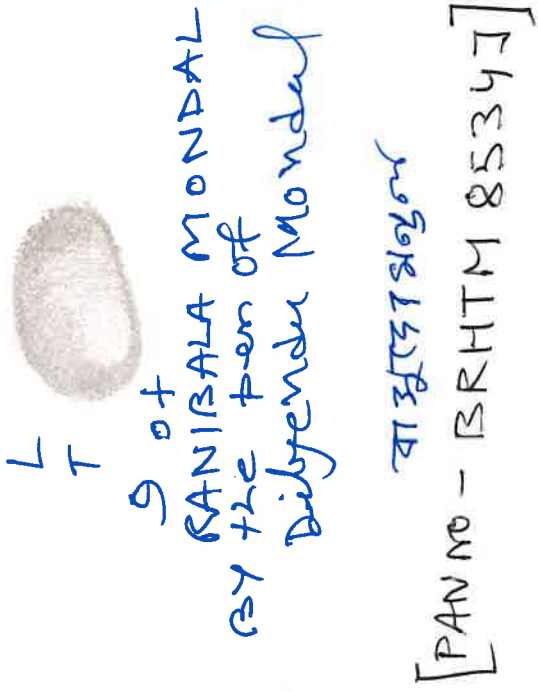 L
T
I of
RANIBALA MONDAL
BY the pen of
Dibyendu Mondal
[PAN NO - BRHTM 8534J]